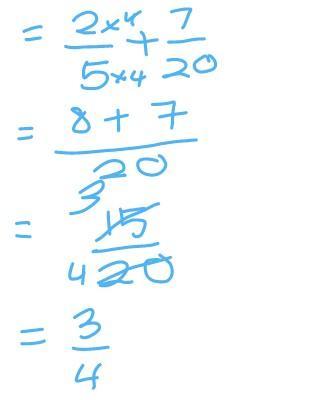 = 2×4/5×4 + 7/20
= 8 + 7/20
= 3 15/4 20
= 3/4